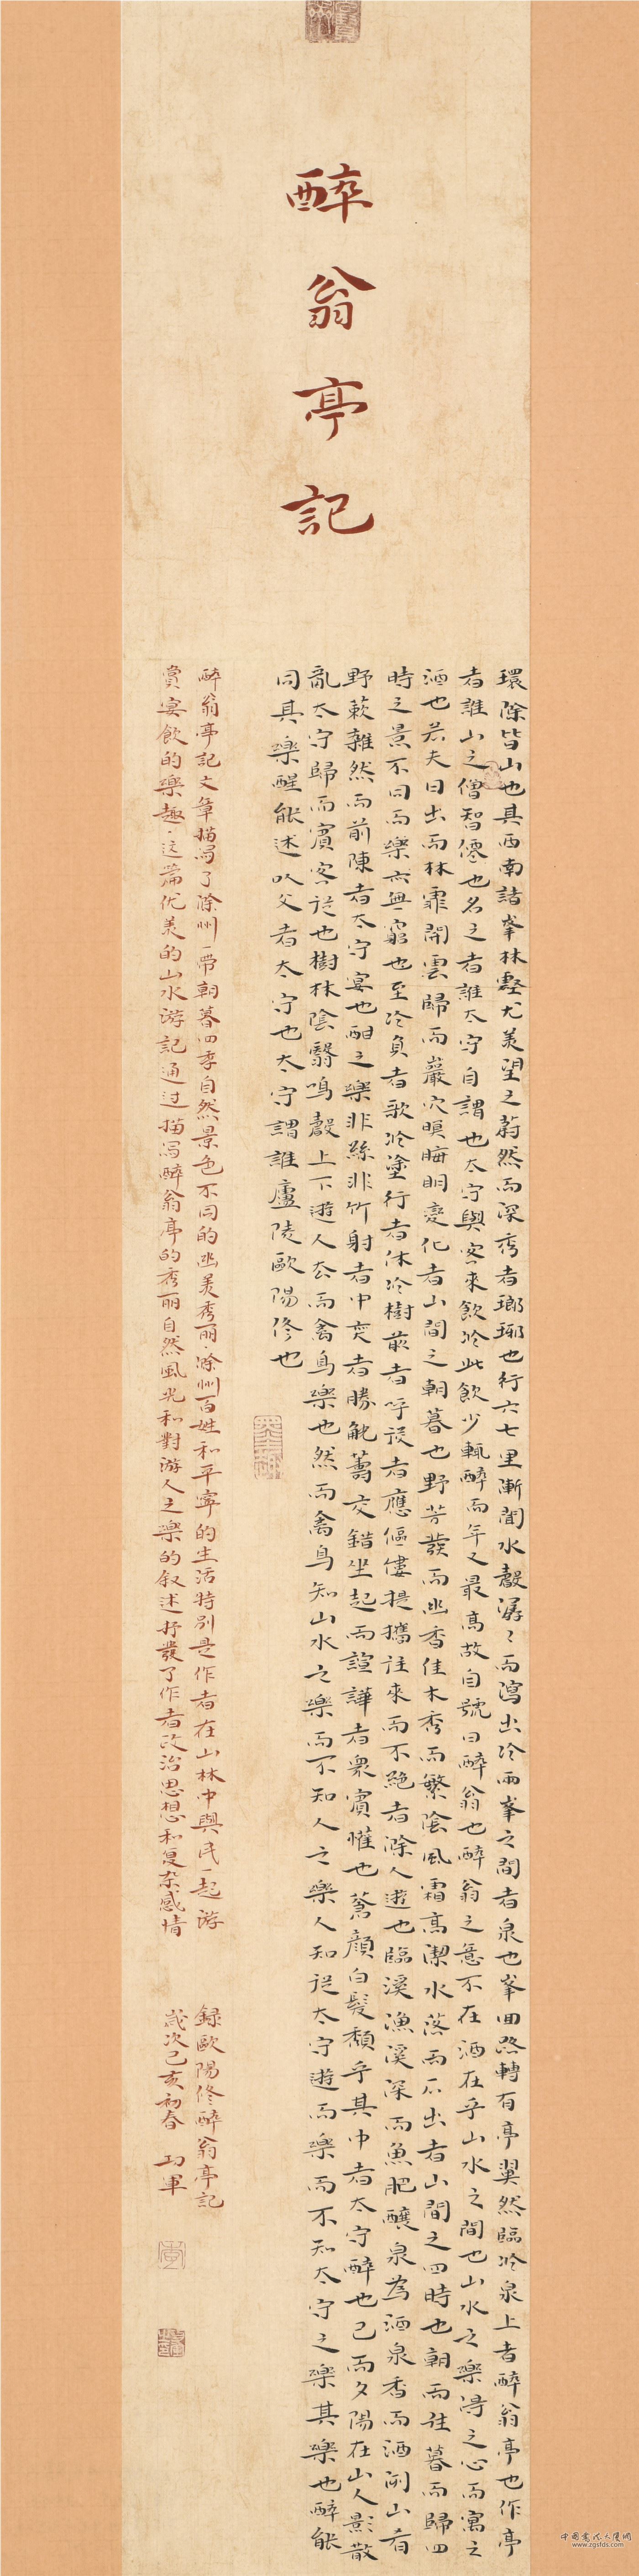 醉翁亭記
環滁皆山也其西南諸峯林壑尤美望之蔚然而深秀者瑯琊也行六七里漸聞水聲潺〻而瀉出於兩峯之間者泉也峯回路轉有亭翼然臨於泉上者醉翁亭也作亭
者誰山之僧智僊也名之者誰太守自謂也太守與客來飲於此飲少輒醉而年又最高故自號曰醉翁也醉翁之意不在酒在乎山水之間也山水之樂得之心而寓之
酒也若夫日出而林霏開雲歸而巖穴暝晦明變化者山間之朝暮也野芳發而幽香佳木秀而繁陰風霜高潔水落而石出者山間之四時也朝而往暮而歸四
時之景不同而樂亦無窮也至於負者歌於塗行者休於樹前者呼後者應傴僂提攜往來而不絕者滁人遊也臨溪漁溪深而魚肥釀泉為酒泉香而酒洌山肴
野蔌雜然而前陳者太守宴也酣之樂非絲非竹射者中奕者勝觥籌交錯坐起而諠譁者衆賓懽也蒼顏白髮頹乎其中者太守醉也已而夕陽在山人影散
亂太守歸而賓客從也樹林陰翳鳴聲上下遊人去而禽鳥樂也然而禽鳥知山水之樂而不知人之樂人知從太守遊而樂而不知太守之樂其樂也醉能
同其樂醒能述以文者太守也太守謂誰廬陵歐陽修也
醉翁亭記文章描写了滁州一帶朝暮四季自然景色不同的幽美秀丽·滁州百姓和平寧的生活特别是作者在山林中與民一起游
賞宴飲的樂趣·这篇优美的山水游記通过描写醉翁亭的秀丽自然風光和對游人之樂的叙述抒發了作者政治思想和复杂感情
録歐陽修醉翁亭記
歲次己亥初春 功軍
中国书法人隆网
www.zgsfds.com